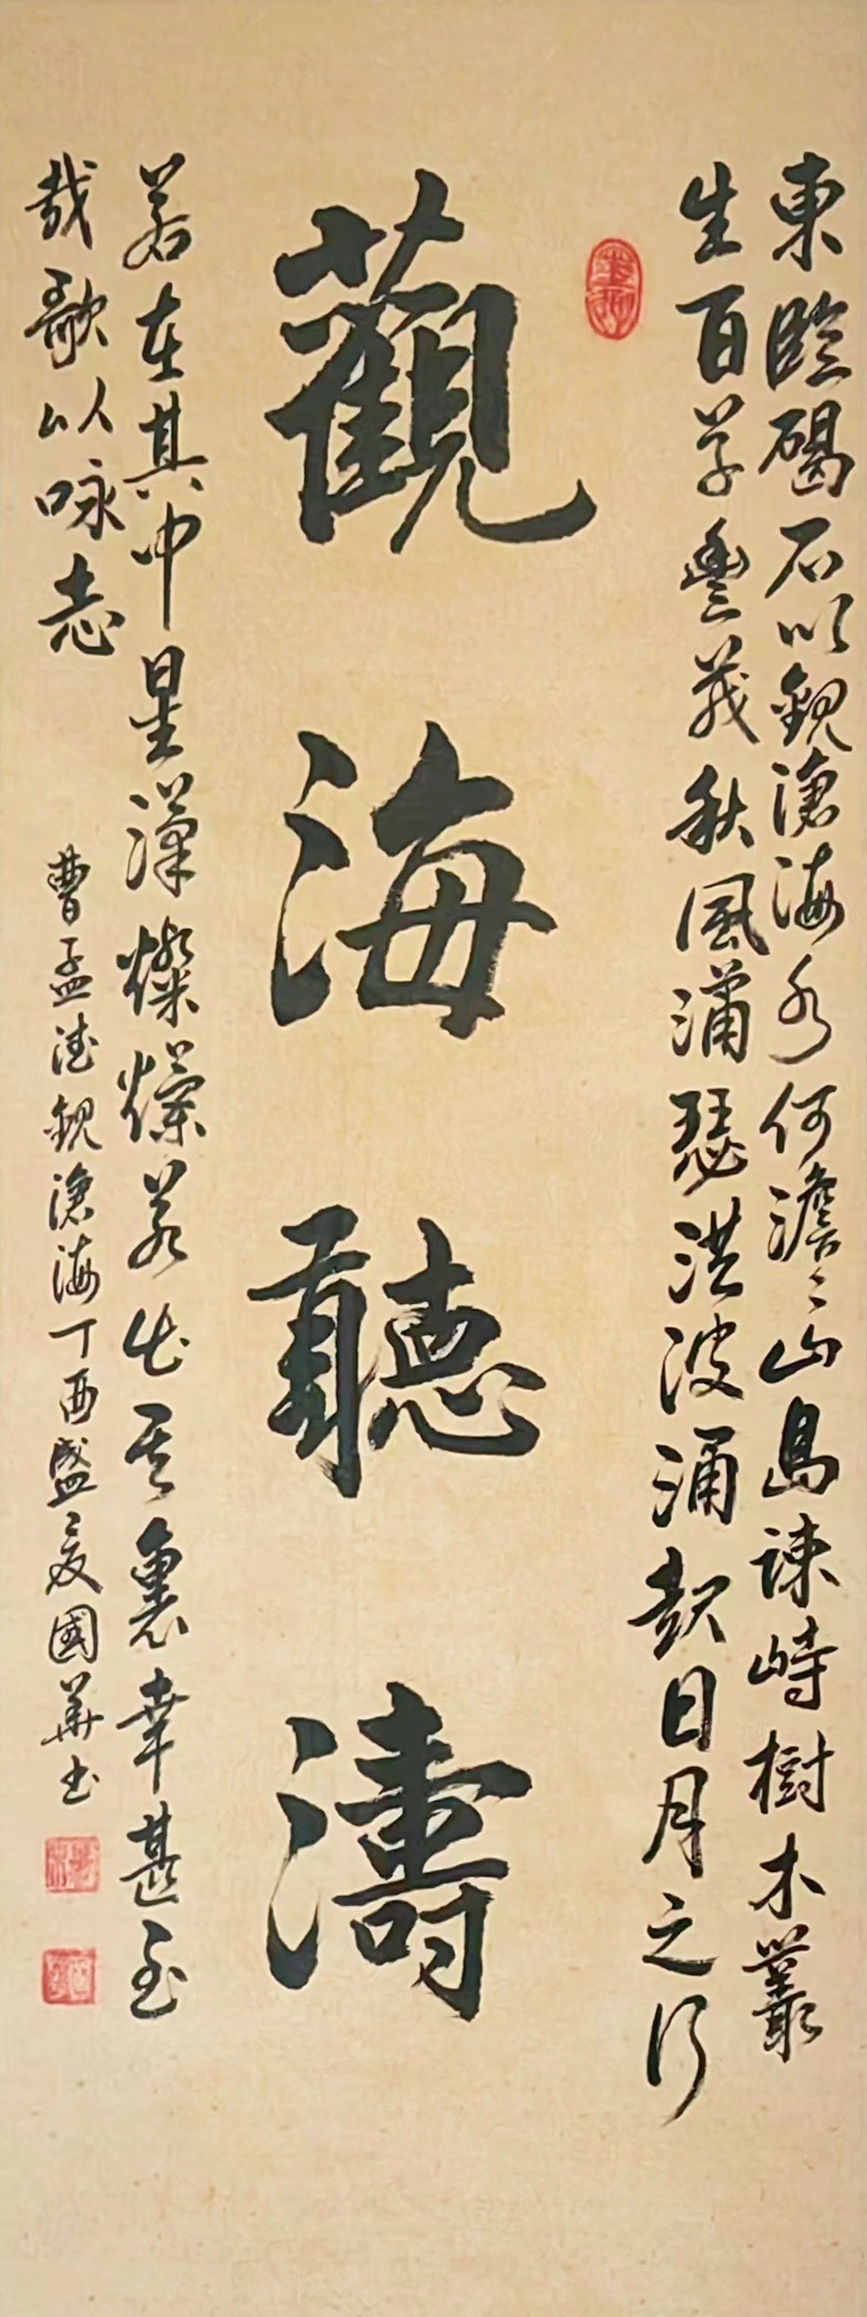 東臨碣石以觀滄海水何澹〻山島竦峙樹木叢
生百草豐茂秋風瀟瑟洪波涌起日月之行
觀海聽濤
若在其中星漢燦爛若出其裏幸甚至
哉歌以咏志
曹孟德觀滄海丁酉盛夏國華书